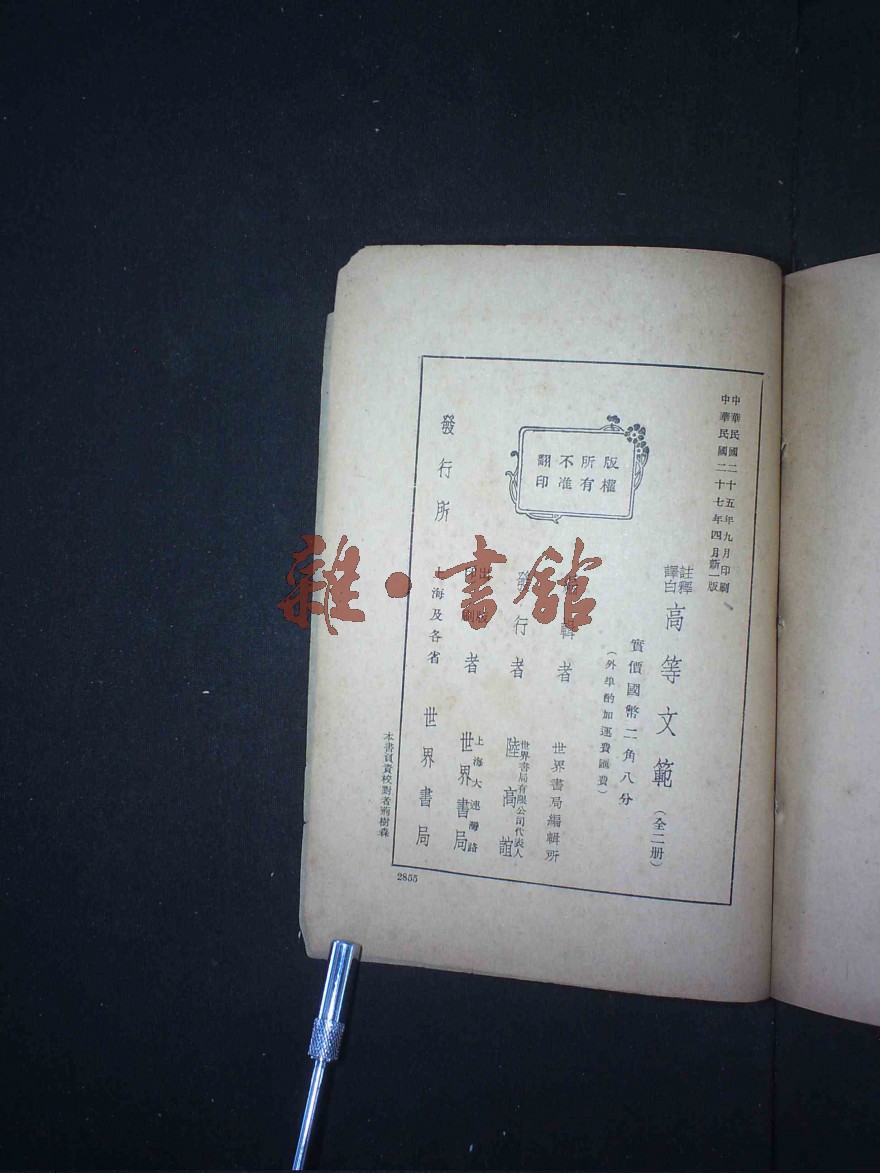 中華民國二十五年九月印刷
中華民國二十七年四月新一版
註釋
譯白
高等文範(全二册)
實價國幣二角八分
(外埠酌加運費匯費)
版權
所有
不准
翻印
編輯者 世界書局編輯所
發行者 世界書局有限公司代表人 陸高誼
出版
印刷
者 上海大連灣路 世界書局
發行所 上海及各省 世界書局
本書負責校對者 樹森
2855
雜·書館